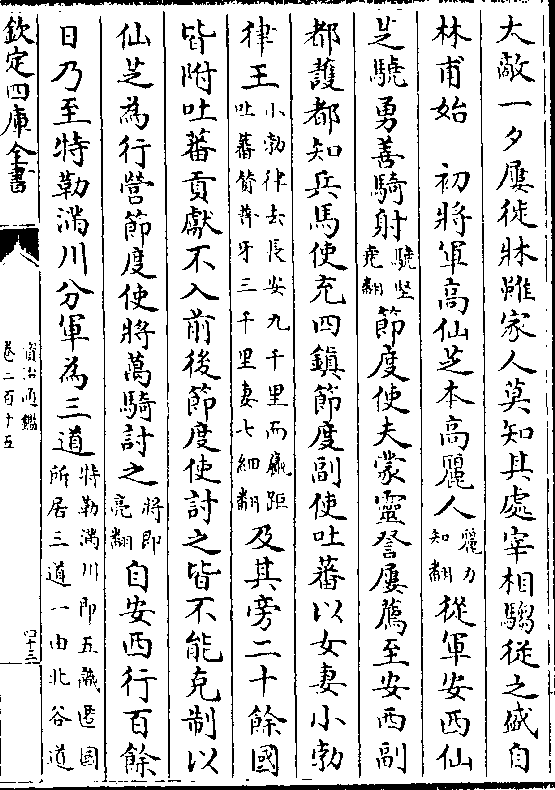 大敵一夕屢徙牀雖家人莫知其處宰相騶從之盛自
林甫始　初將軍高仙芝本高麗人麗力知翻從軍安西仙
芝驍勇善騎射驍堅堯翻節度使夫蒙靈詧屢薦至安西副
都護都知兵馬使充四鎮節度副使吐蕃以女妻小勃
律王小勃律去長安九千里而羸距吐蕃贊普牙三千里妻七細翻及其旁二十餘國
皆附吐蕃貢獻不入前後節度使討之皆不能克制以
仙芝為行營節度使將萬騎討之將即亮翻自安西行百餘
日乃至特勒滿川分軍為三道特勒滿川即五識匿國所居三道一由北谷道
欽定四庫全書
資治通鑑
卷二百十五
四十三